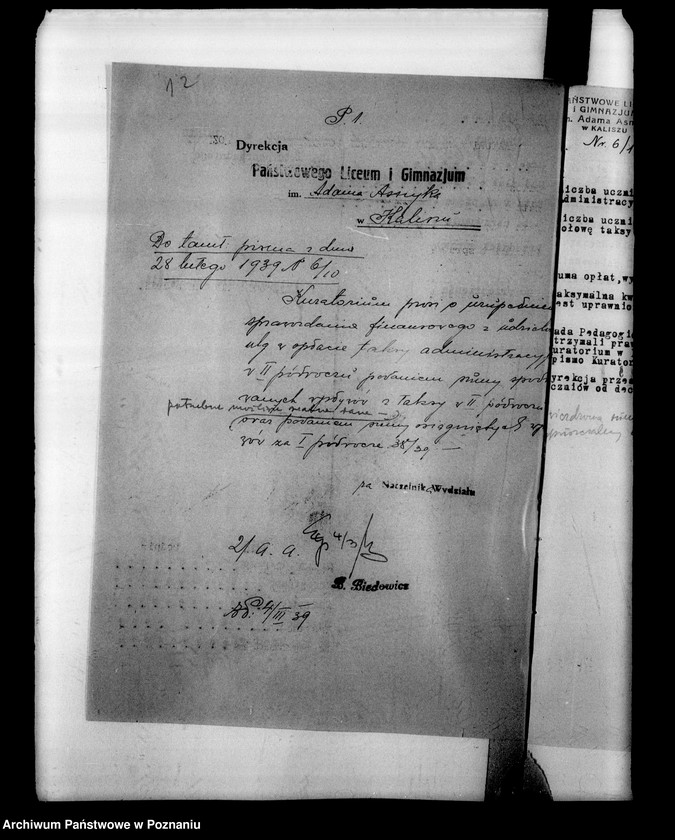 12
P. 1.
Dyrekcja
Państwowego Liceum i Gimnazjum
im. Adama Asnyka
w Kaliszu
Do tamt. pisma z dnia
28 lutego 1939 N 6/10
Kuratorium prosi o uzupełnienie
sprawozdania finansowego z udziel
ulg w opłacie taksy administracyj
w II półroczu podaniem sumy spodz
wanych wpływów z taksy w II półroczu
potrzebne
oraz podaniem sumy osiągniętych wp
wów za I półrocze 38/39 —
pa Naczelnik Wydziału
2/ a. a.
4/3
B. Biedowicz
4/III 39
ŃSTWOWE LI
I GIMNAZJUM
m. Adama Asn
W KALISZU
Nr. 6/1
iczba uczni
dministracy
iczba uczni
ołowę taksy
uma opłat,wy
aksymalna kw
est uprawnio
ada Pedagogic
trzymali praw
uratorium w
pismo Kurator
yrekcja prze
czaiów od dec
Archiwum Państwowe w Poznaniu